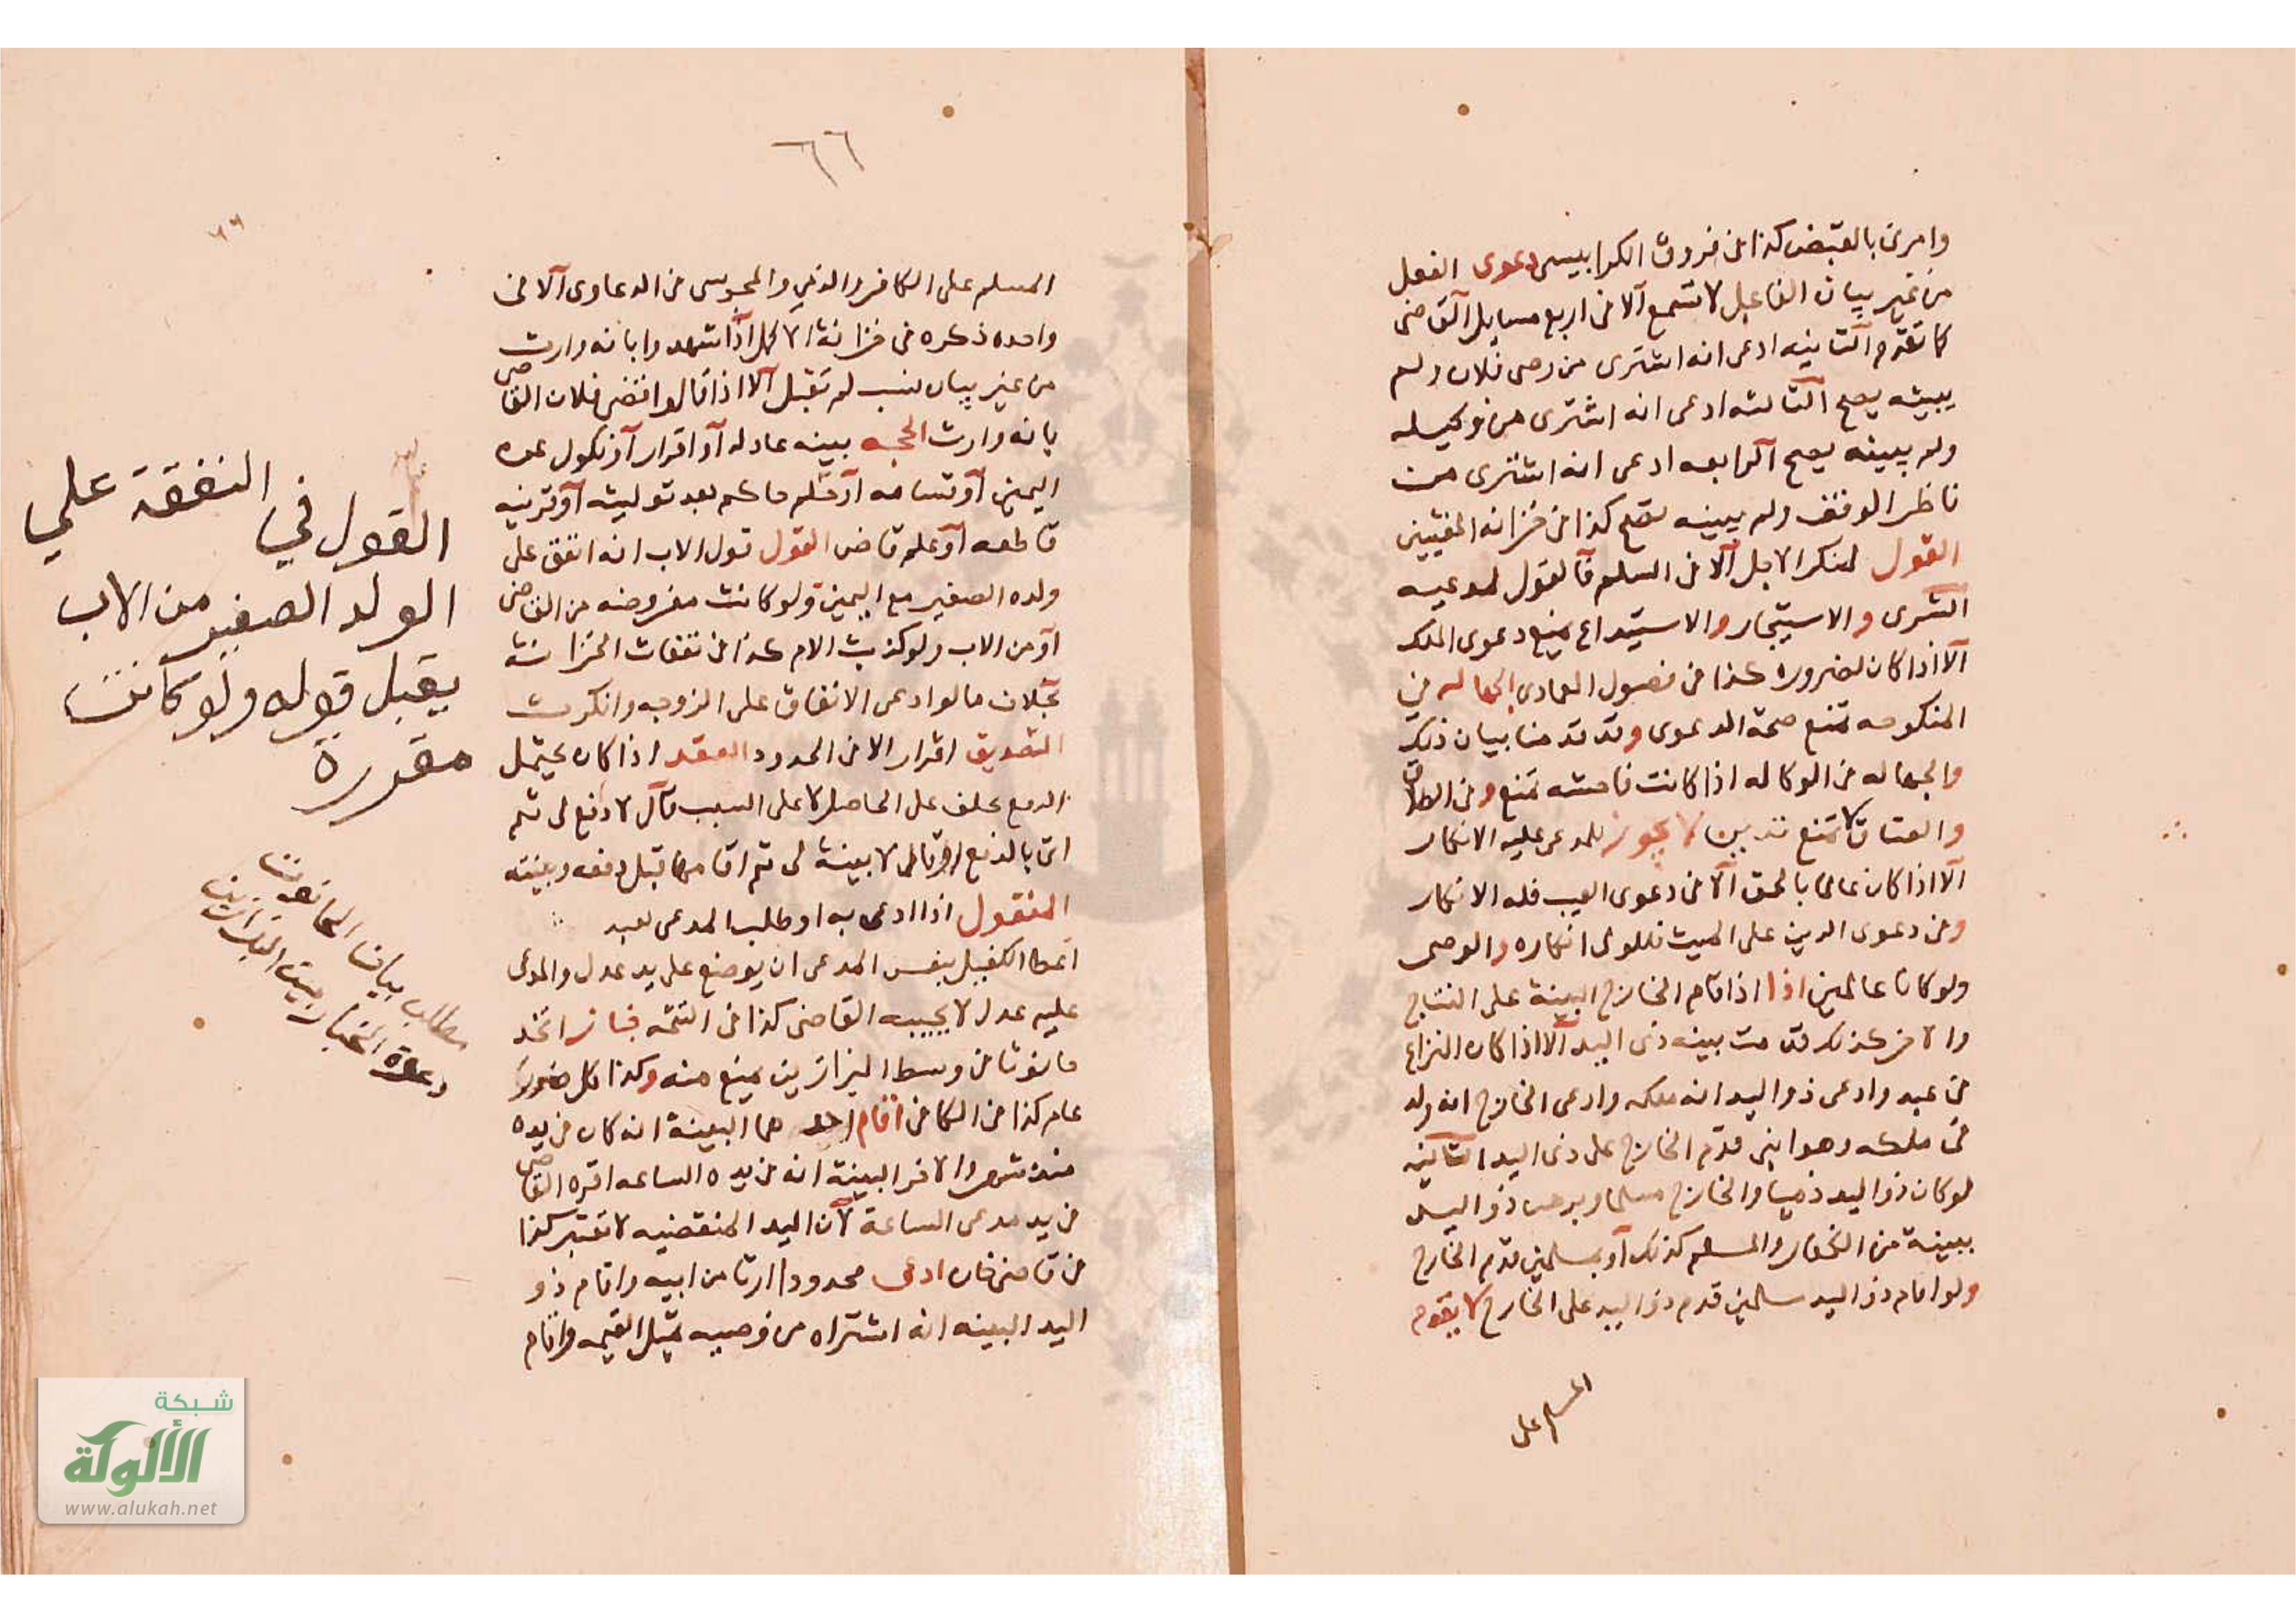 وامرنى بالقبض كذا فى فروق الكرابيسى دعوى الفعل
من غير بيان الفاعل لا تسمع الا فى اربع مسايل القاضى
كما تقدم الثانيه ادعى انه اشترى من وصى فلان ولم
يبينه يصح الثالثه ادعى انه اشترى من وكيله
ولم يبينه يصح الرابعه ادعى انه اشترى من
ناظر الوقف ولم يبينه تصح كذا فى خزانه المفتيين
القول لمنكر الاجل الا فى السلم فالقول لمدعيه
الشرى والاستيجار والاستيداع يمنع دعوى الملك
الا اذا كان لضروره كذا فى فصول العمادى الجهاله فى
المنكوحه تمنع صحة الدعوى وقد قدمنا بيان ذلك
والجهاله فى الوكاله اذا كانت فاحشه تمنع وفى الطلاق
والعتاق لا تمنع لا يجوز للمدعى عليه الانكار
الا اذا كان عالما بالحق الا فى دعوى العيب فله الانكار
وفى دعوى الدين على الميت انكاره والوصى
ولو كانا عالمين اذا اذا اقام الخارج البينة على النتاج
والاخر كذلك قدمت بينه ذى اليد الا اذا كان النزاع
فى عبد وادعى ذو اليد انه ملكه وادعى الخارج انه ولد
فى ملكه وهو ابنى قدم الخارج على ذى اليد الثانيه
لو كان ذو اليد ذميا والخارج مسلما وبرهن ذو اليد
ببينة من الكفار والمسلم كذلك او بمسلمين قدم الخارج
ولو اقام ذو اليد مسلمين قدم ذو اليد على الخارج لا يقدم
المسلم على
٦٦
٦٦
المسلم على الكافر والذمي والمجوسى فى الدعاوى الا فى
واحده ذكره فى خزانة الاكمل اذا شهدوا بانه وارث
من غير بيان سبب لم تقبل الا اذا قالوا قضى فلان القاضى
بانه وارث الحجه بينه عادله او اقرار او نكول عن
اليمين او قسامه او علم حاكم بعد توليته او قرينه
قاطعه او علم قاض القول قول الاب انه انفق على
ولده الصغير مع اليمين ولو كانت مفروضه من القاضى
او من الاب ولو كذبت الام كذا فى نفقات الخزانة
بخلاف ما لو ادعى الانفاق على الزوجه وانكرت
التصديق اقرار الا فى الحدود العقد اذا كان يحتمل
الدفع يحلف على الحاصل لا على السبب قال لا دفع لى ثم
اتى بالدفع او قال لا بينة لى ثم اقامها قبل دفعه وبينته
المنقول اذا ادعى به او طلب المدعى بعد
اعطا الكفيل بنفس المدعى ان يوضع على يد عدل والمدعى
عليه عدل لا يجيبه القاضى كذا فى خباز اتخذ
حانوتا فى وسط البزازين يمنع منه وكذا كل ضرر
عام كذا فى الكافى اقام احدهما البينة انه كان فى يده
منذ شهر والاخر البينة انه فى يده الساعه اقره القاضى
فى يد مدعى الساعة لان اليد المنقضيه لا تعتبر كذا
فى قاضى خان ادعى محدودا ارثا من ابيه واقام ذو
اليد البينه انه اشتراه من وصيه بمثل القيمه واقام
القول في النفقة علي
الولد الصغير من الاب
يقبل قوله ولو كانت
مقررة
مطلب بيان الحانوت
شبكة
الألوكة
www.alukah.net